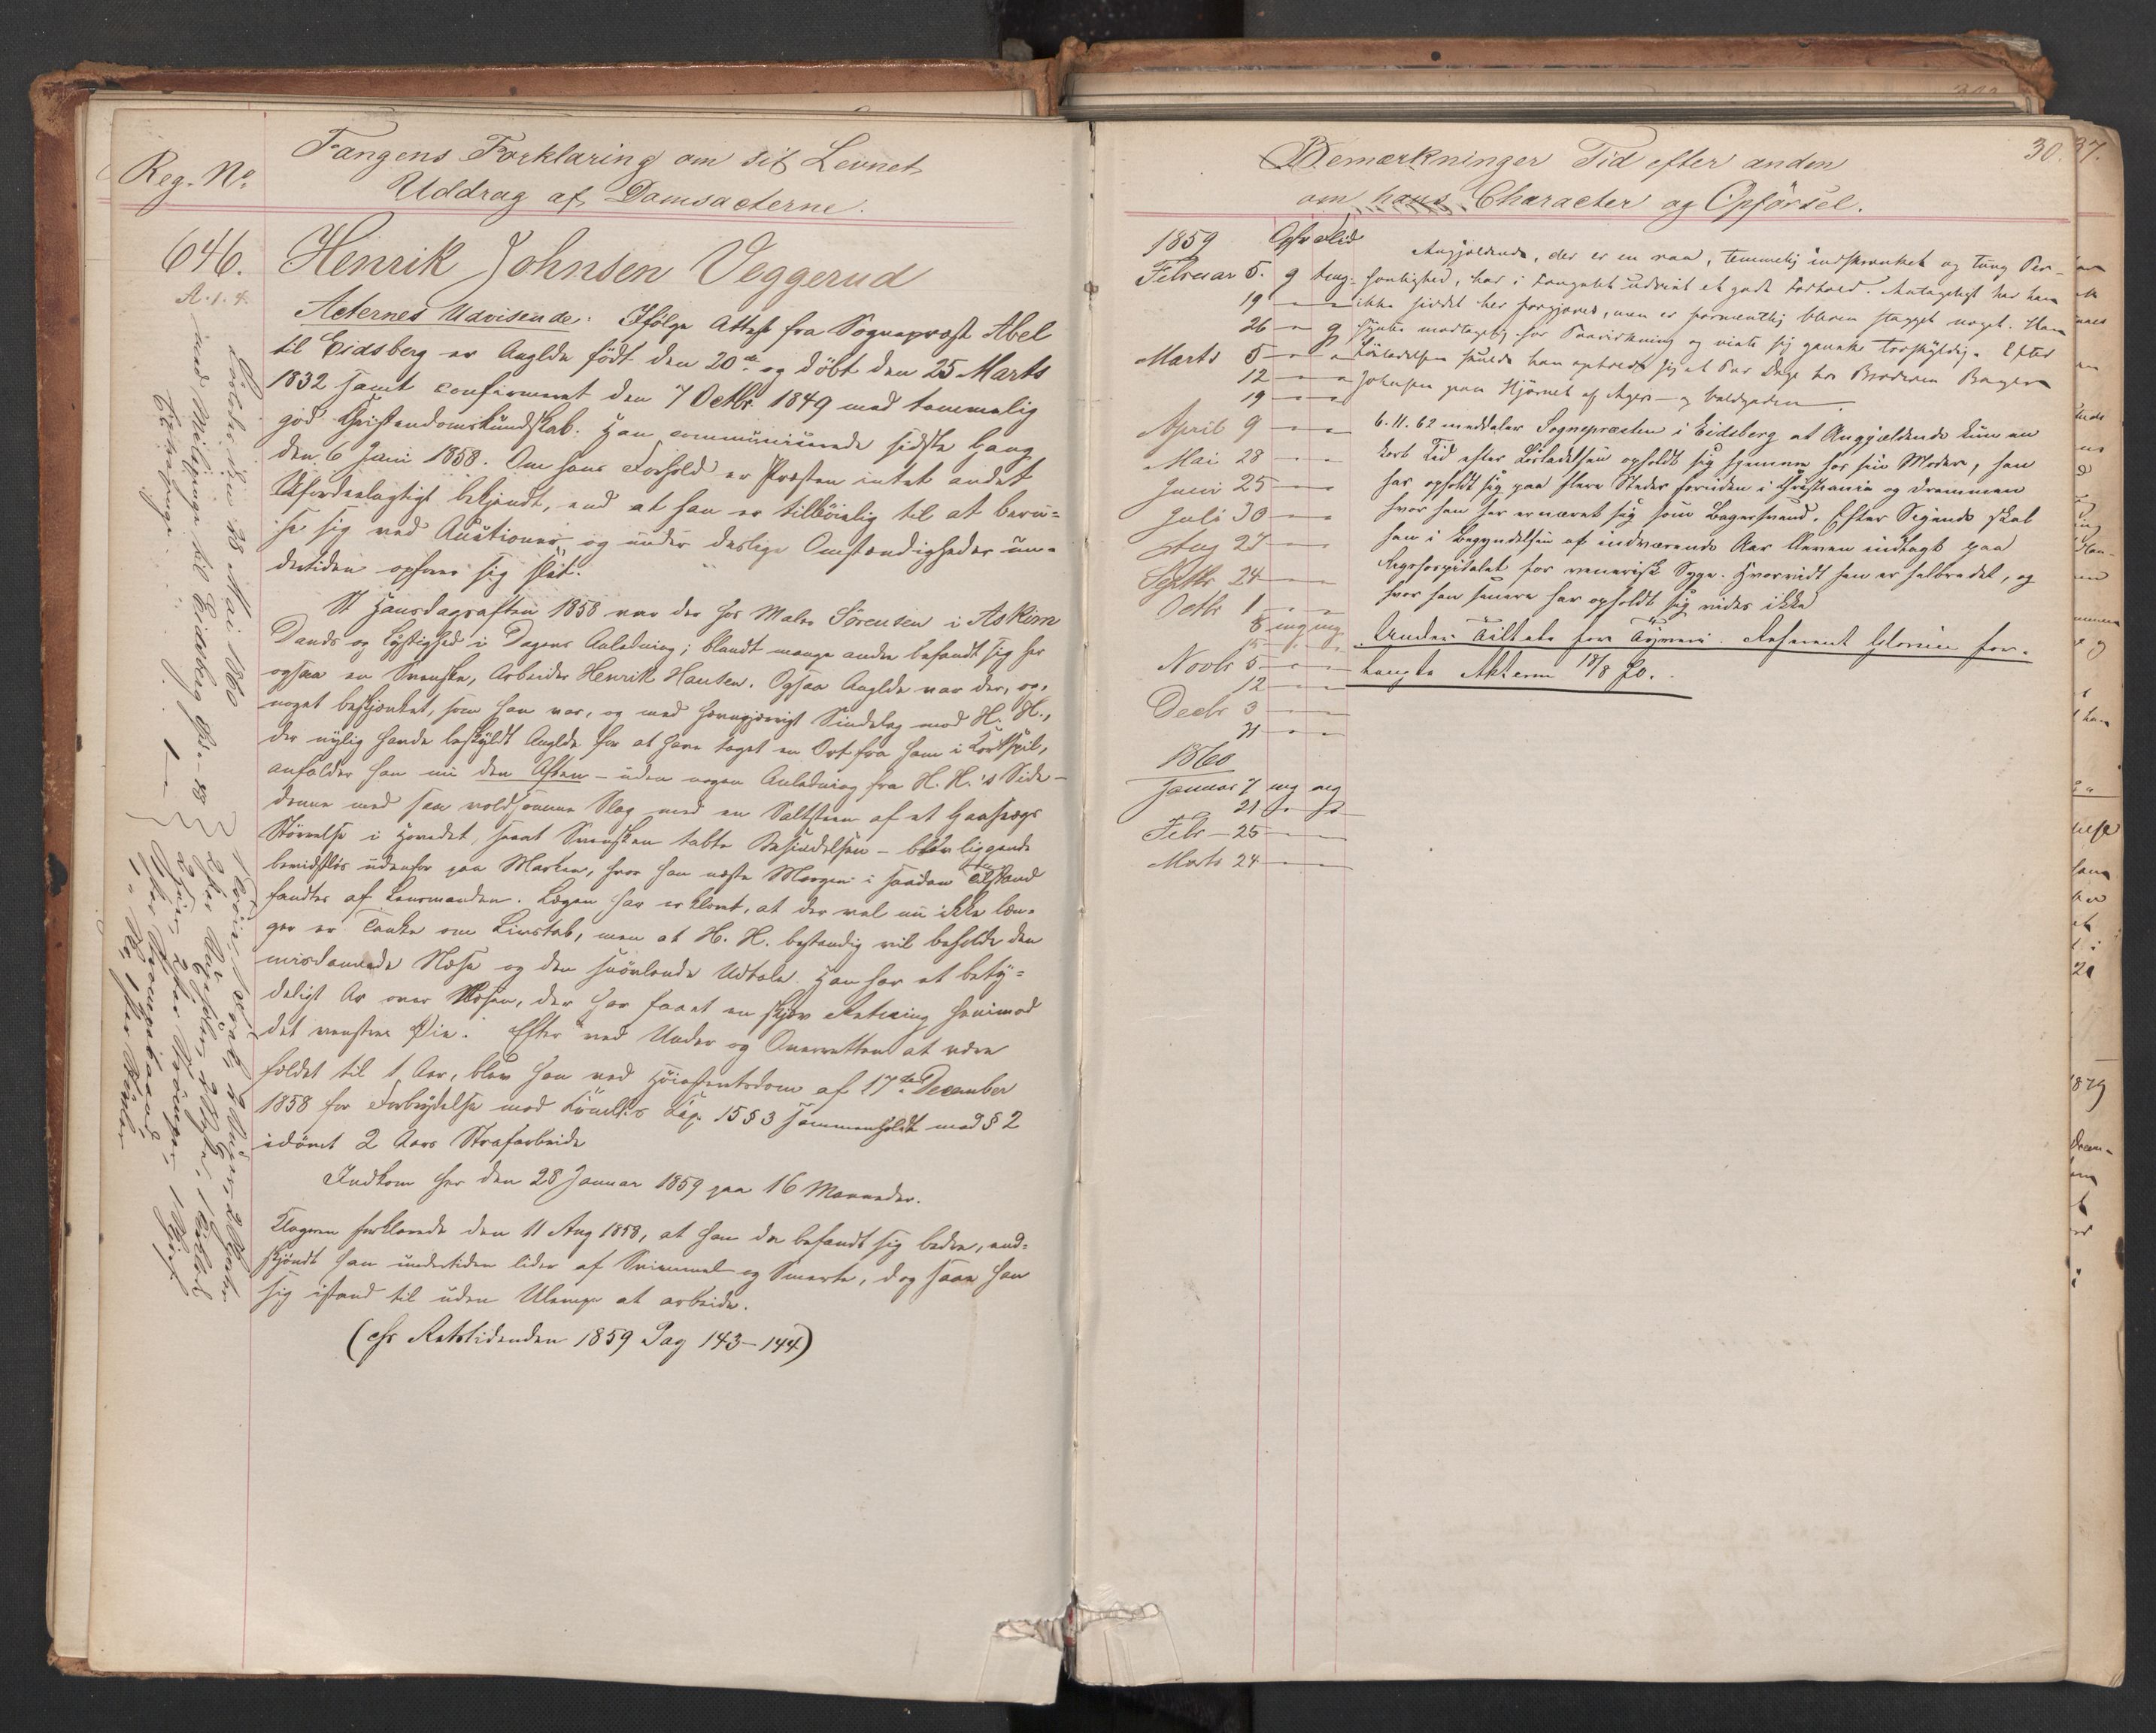 Reg. No.
Fangens Forklaring om sit Levnet
Uddrag af Domsacterne.
646.
A. 1. 4.
Henrik Johnsen Veggerud
Acternes Udvisende: Ifølge Attest fra Sognepræst Abel
til Eidsberg er Anglde født den 20de og döbt den 25 Marts
1832 samt confirmeret den 7 Octbr. 1849 med temmelig
god Christendomskundskab. Han communicerede sidste Gang
den 6 Juni 1858. Om hans Forhold er Præsten intet andet
Ufordeelagtigt bekjendt, end at han er tilböielig til at beru-
se sig ved Auctioner og under deslige Omstændigheder un-
dertiden opfører sig slet.
St Hansdagsaften 1858 var der hos Maler Sörensen i Askim
Dands og Lystighed i Dagens Anledning; blandt mange andre befandt sig her
ogsaa en Svenske, Arbeider Henrik Hansen. Ogsaa Anglde var der, og,
noget beskjænket, som han var, og med hevngjerrigt Sindelag mod H. H.,
der nylig havde beskyldt Anglde for at have taget en Ort fra ham i Kortspil,
anfalder han nu den Aften – uden nogen Anledning fra H. H.'s Side –
denne med saa voldsomme Slag med en Saltsteen af et Gaasægs
Størrelse i Hovedet, saa at Svensken tabte Besindelsen – blev liggende
bevidstløs udenfor paa Marken, hvor han næste Morgen i saadan Tilstand
fandtes af Lensmanden. Lægen har erklæret, at der vel nu ikke læn-
ger er Tanke om Livstab, men at H. H. bestandig vil beholde den
misdannede Næse og den snövlende Udtale. Han har et bety-
deligt Ar over Næsen, der har faaet en skjæv Retning henimod
det venstre Øie. Efter ved Under og Overretten at være
fældet til 1 Aar, blev han ved Höiesteretsdom af 17de December
1858 for Forbrydelse mod Crimls Cap. 15 § 3 sammenholdt med § 2
idömt 2 Aars Strafarbeide
Indkom her den 28 Januar 1859 paa 16 Maaneder.
Klageren forklarede den 11 Aug 1858, at han da befandt sig bedre, end-
skjöndt han undertiden lider af Svimmel og Smerte, dog saae han
sig istand til uden Ulempe at arbeide.
(cfr Retstidenden 1859 Pag 143–144)
Løsladt den 28 Mai 1860
med Reisepenge til Eidsberg
Bemærkninger Tid efter anden
om hans Character og Opförsel.
30.
37.
1859 Opf Flid
Februar 5. g
19
26 g
Marts 5
12
19
April 9
Mai 28
Juni 25
Juli 30
Aug 27
Septbr 24
Octbr 1
8 mg mg
15
Novbr 5
12
Decbr 3
31
1860
Januar 7 mg mg
21
Febr 25
Marts 24
Angjældende, der er en raa, temmelig indskrænket og tung Per-
sonlighed, har i Fængslet udviist et godt Forhold. Antageligt har han
ikke siddet her forgjæves, men er formentlig bleven stagget noget. Han
synes modtagelig for Paavirkning og viste sig ganske troskyldig. Efter
Lösladelsen skulde han opholde sig et Par Dage hos Broderen Bager
Johnsen paa Hjörnet af Agers- og Voldgaden
6.11.62 meddeler Sognepræsten i Eidsberg at Angjældende kun en
kort Tid efter Lösladelsen opholdt sig hjemme hos sin Moder, han
har opholdt sig paa flere Steder foruden i Christiania og Drammen
hvor han har ernæret sig som Bagersvend. Efter Sigende skal
han i Begyndelsen af indværende Aar bleven indlagt paa
Rigshospitalet for venerisk Syge. Hvorvidt han er helbredet, og
hvor han senere har opholdt sig vides ikke
Under Tiltale for Tyveri. Referent Glorien for-
langte Akterne 18/8 80.